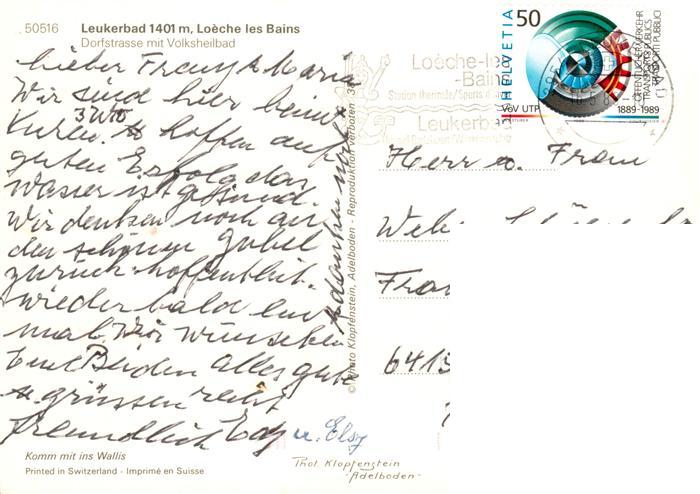 50516 Leukerbad 1401 m, Loèche les Bains
Dorfstrasse mit Volksheilbad
lieber Franz & Maria
Wir sind hier beim
Kuren. 3 Wo hoffen auf
guten Erfolg das
Wasser ist gesund.
Wir denken noch an
den schönen Jubel
zurück. hoffentlich
wieder bald ein
mal. Wir wünschen
Euch Beiden alles gute
u grüssen recht
freundlich Edy u. Elsy
Komm mit ins Wallis
Printed in Switzerland - Imprimé en Suisse
© Renato Klopfenstein, Adelboden - Reproduktion verboten
Phot. Klopfenstein
-Adelboden-
Loèche-les
-Bains
Station thermale/Sports
Leukerbad
HELVETIA 50
VöV UTP 1889-1989
ÖFFENTLICHER VERKEHR
TRANSPORTS PUBLICS
TRASPORTI PUBBLICI
Herr u. Frau
6415